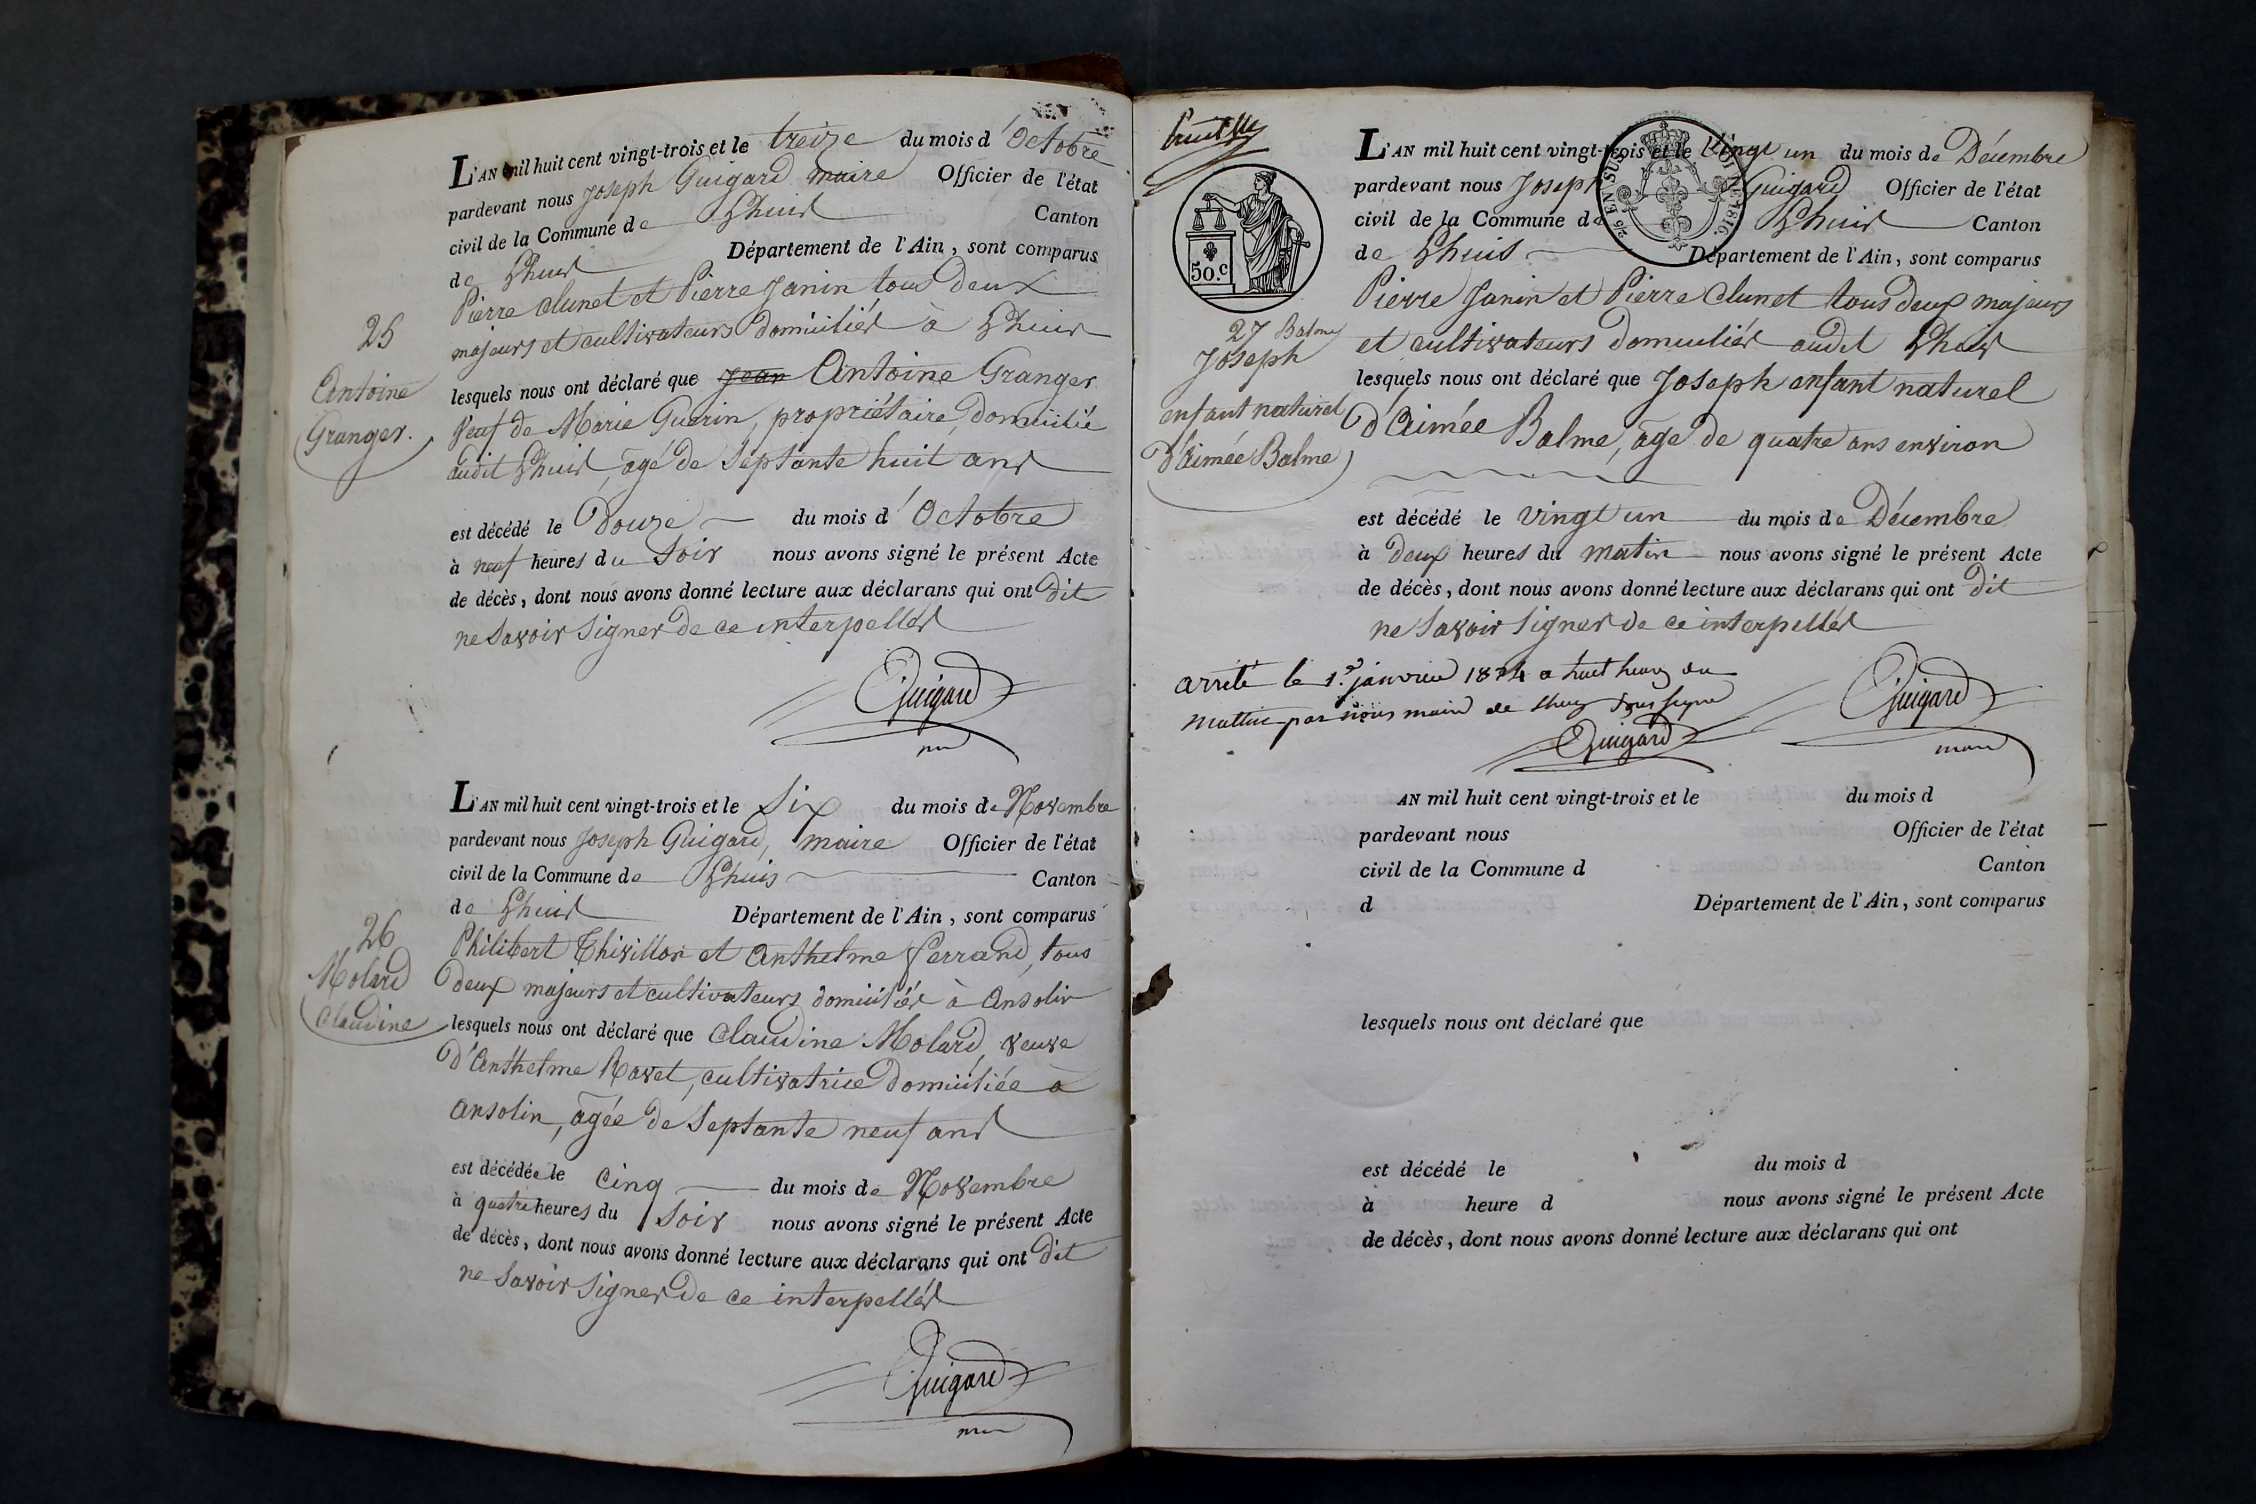 L'AN mil huit cent vingt-trois et le treize du mois d'Octobre
pardevant nous Joseph Guigard maire Officier de l'état
civil de la Commune de Lhuis Canton
de Lhuis Département de l'Ain, sont comparus
Pierre Clunet et Pierre Janin tous deux
majeurs et cultivateurs domiciliés à Lhuis
25
Antoine
Granger.
lesquels nous ont déclaré que Jean Antoine Granger
Veuf de Marie Guerin, propriétaire, domicilié
audit Lhuis, agé de Septante huit ans
est décédé le Douze du mois d'Octobre
à neuf heures du Soir nous avons signé le présent Acte
de décès, dont nous avons donné lecture aux déclarans qui ont dit
ne Savoir Signer de ce interpellés
Guigard
L'AN mil huit cent vingt-trois et le Six du mois de Novembre
pardevant nous Joseph Guigard, maire Officier de l'état
civil de la Commune de Lhuis Canton
de Lhuis Département de l'Ain, sont comparus
26
Molard
Claudine
Philibert Thivillon et Anthelme Ferrand, tous
deux majeurs et cultivateurs domiciliés à Ansolin
lesquels nous ont déclaré que Claudine Molard, veuve
d'Anthelme Ravet, cultivatrice domiciliée à
Ansolin, agée de Septante neuf ans
est décédée le Cinq du mois de Novembre
à quatre heures du Soir nous avons signé le présent Acte
de décès, dont nous avons donné lecture aux déclarans qui ont dit
ne Savoir Signer de ce interpellés
Guigard
50.c
26 EN SUS
LOI DE 1816.
L'AN mil huit cent vingt-trois et le Vingt un du mois de Décembre
pardevant nous Joseph Guigard Officier de l'état
civil de la Commune de Lhuis Canton
de Lhuis Département de l'Ain, sont comparus
Pierre Janin et Pierre Clunet tous deux majeurs
et cultivateurs domiciliés audit Lhuis
27 Balme
Joseph
enfant naturel
d'Aimée Balme
lesquels nous ont déclaré que Joseph enfant naturel
d'Aimée Balme, agé de quatre ans environ
est décédé le Vingt un du mois de Décembre
à deux heures du matin nous avons signé le présent Acte
de décès, dont nous avons donné lecture aux déclarans qui ont dit
ne Savoir Signer de ce interpellés
arrêté le 1er janvier 1824 a huit heures du
mattin par nous maire de Lhuis soussigné
Guigard
Guigard
maire
AN mil huit cent vingt-trois et le du mois d
pardevant nous Officier de l'état
civil de la Commune d Canton
d Département de l'Ain, sont comparus
lesquels nous ont déclaré que
est décédé le du mois d
à heure d nous avons signé le présent Acte
de décès, dont nous avons donné lecture aux déclarans qui ont